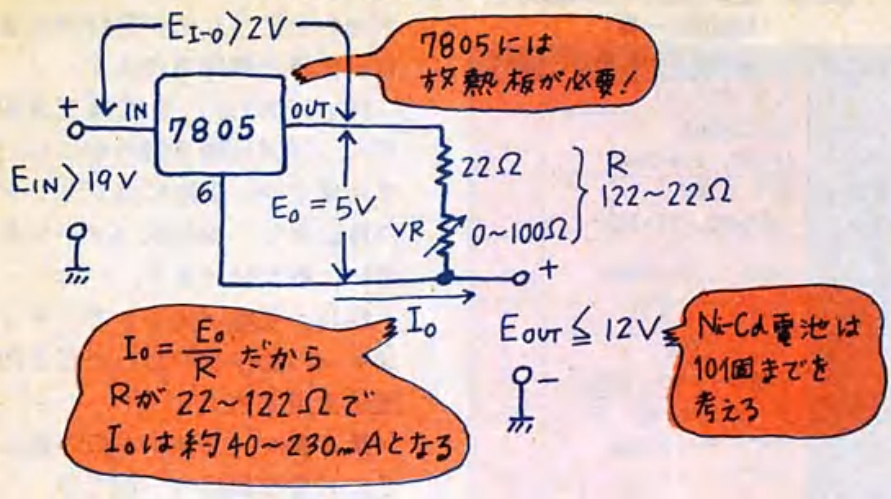 E_I-O>2V
7805には
放熱板が必要!
+
IN
7805
OUT
E_IN>19V
6
E_o=5V
22Ω
VR
0~100Ω
R
122~22Ω
+
I_o
I_o=E_o/Rだから
Rが22~122Ωで
I_oは約40~230mAとなる
E_OUT≦12V
-
Ni-Cd電池は
10個までを
考える